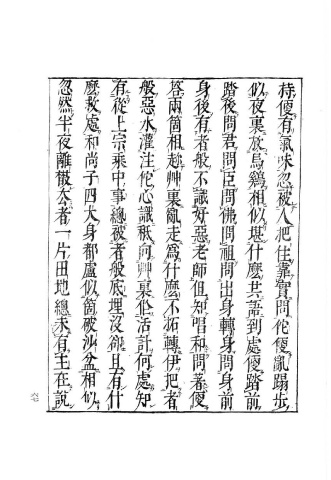 持便有氣味忽被人把住靠實問佗便亂蹋步
似夜裏放烏鷄相似堪什麼共語到處便踏前
踏後問君問臣問佛問祖問出身轉身問身前
身後有者般不識好惡老師但知唱和問著便
荅兩箇相趂艸裏亂走爲什麼不拓轉伊把者
般惡水灌注佗心識秪向艸裏俗活計何處知
有從上宗乘中事緫被者般底埋没郤且有什
麼救處和尚子四大身都盧似箇被沙盆相似
忽然半夜離散太者一片田地緫未有主在說